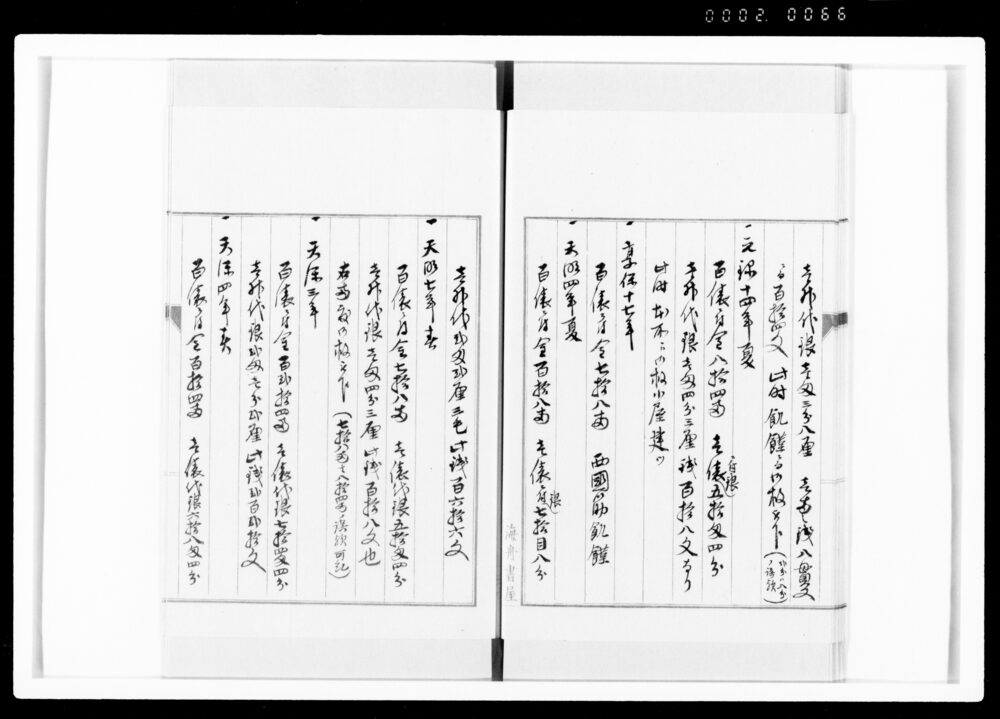 0002. 0066
壱升代銀壱匁三分八厘 壱両ニ銭八貫文
百拾四文 此時飢饉ニ付御救
一 元禄十四年夏
百俵ニ付金八拾四両 壱俵五拾匁四分
壱升代銀壱匁四分三厘 銭百拾八文
此時 御救小屋建
一 享保十七年
百俵ニ付金七拾八両 西國筋飢饉
一 天明四年夏
百俵ニ付金百拾八両 壱俵ニ付銀七拾目八分
海舟書屋
壱升代弐匁弐厘三毛 此銭百六拾六文
一 天明七年春
百俵ニ付金七拾八両 壱俵代銀五拾匁四分
壱升代銀壱匁四分三厘 此銭百拾八文也
右両度御救
一 天保三年
百俵ニ付金百弐拾四両 壱俵代銀七拾四匁四分
壱升代銀弐匁壱分弐厘 此銭弐百弐拾文
一 天保四年春
百俵ニ付金百拾四両 壱俵代銀六拾八匁四分